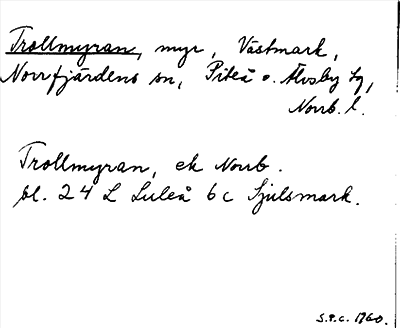 Trollmyran, myr, Västmark,
Norrfjärdens sn, Piteå o. Älvsby tg,
Norrb. l.
Trollmyran, ek Norrb.
bl. 24 L Luleå 6c Sjulsmark.
S.P.C. 1760.